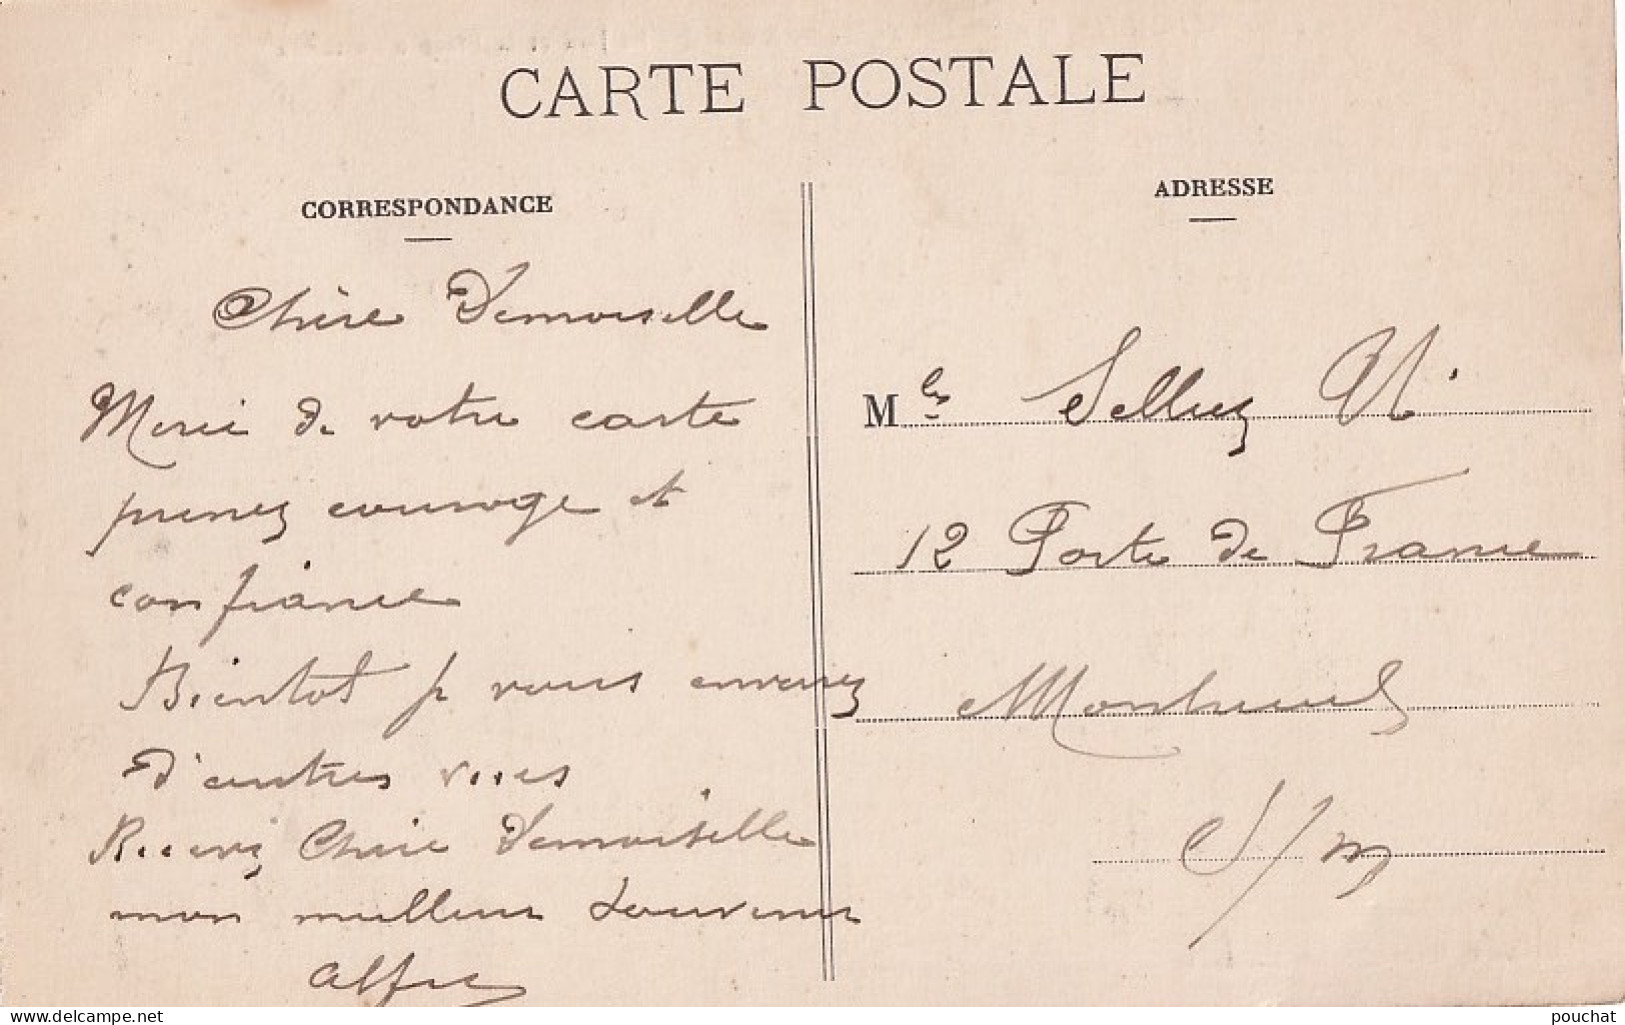 CARTE POSTALE
CORRESPONDANCE
Chère Demoiselle
Merci de votre carte
prenez courage et
confiance
Bientot je vous enverrez
d'autres vues
Recevez Chère Demoiselle
mon meilleur souvenir
Alfred
ADRESSE
M
12 Porte de France
Montreuil
S/m
www.delcampe.net
pouchat